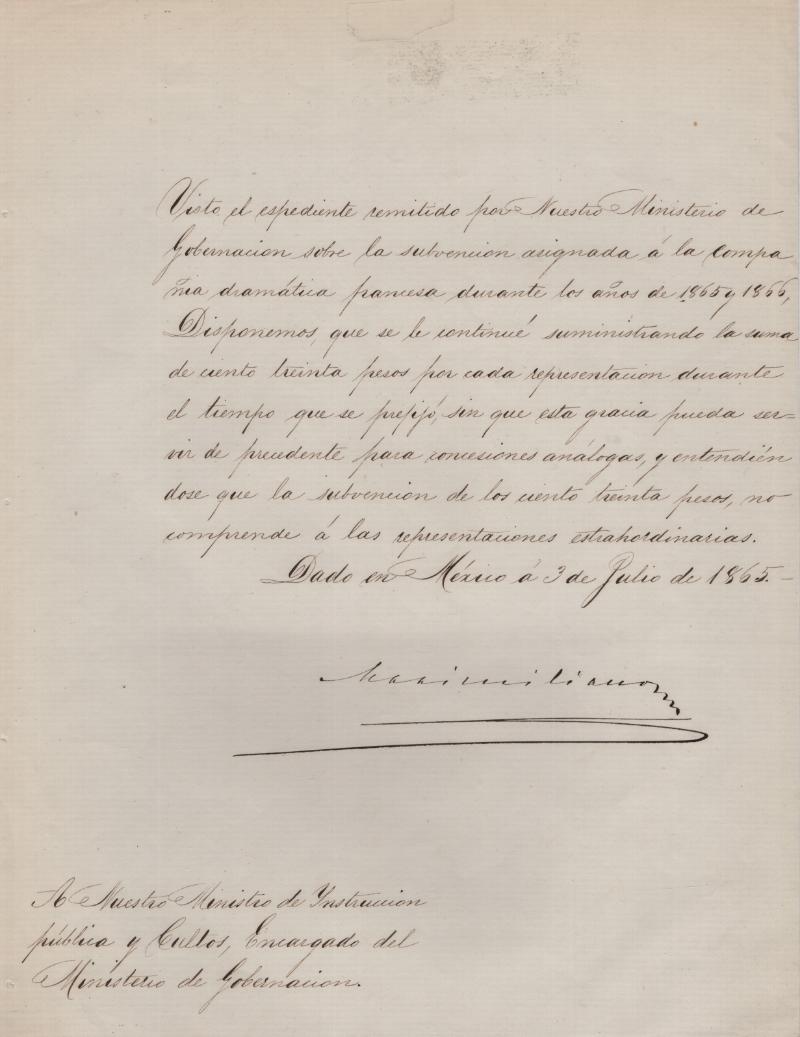 Visto el espediente remitido por Nuestro Ministerio de
Gobernacion sobre la subvencion asignada á la compa
ñia dramática francesa durante los años de 1865 y 1866,
Disponemos, que se le continué suministrando la suma
de ciento treinta pesos por cada representacion durante
el tiempo que se prefijó, sin que esta gracia pueda ser=
vir de precedente para concesiones análogas, y entendién
dose que la subvencion de los ciento treinta pesos, no
comprende á las representaciones estrahordinarias.
Dado en México á 3 de Julio de 1865.—
Maximiliano
A Nuestro Ministro de Ynstruccion
pública y Cultos, Encargado del
Ministerio de Gobernacion.